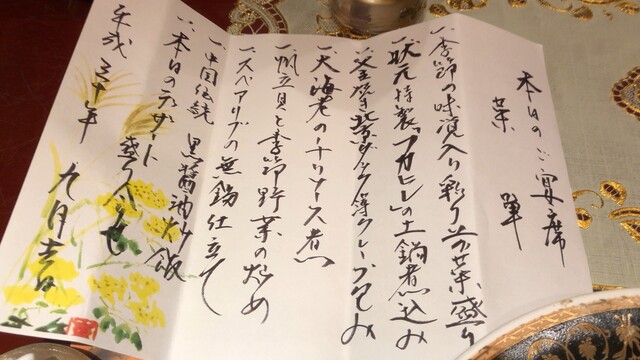 本日のご宴席
菜単
一、季節の味覚入り彩り前菜盛り
一、状元特製「フカヒレ」の土鍋煮込み
一、釜焼き北京ダック等クレープ包み
一、大海老のチリソース煮
一、帆立貝と季節野菜の炒め
一、スペアリブの無錫仕立て
一、中国伝統 黒醤油炒飯
一、本日のデザート盛り合せ
平成三十年 九月吉日